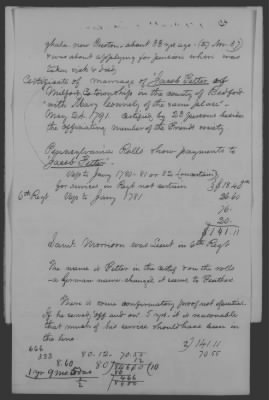 phala. new Preston - about 33 yrs ago - (27 Nov. 37)
was about applying for pension when was
taken sick & died
Certificate of marriage of "Jacob Petter of
Milford Co township in the county of Bedford
"with Mary of the same place" -
May 24. 1791. Certified by 22 persons besides
the officiating member of the Friends society
Pennsylvania Rolls show payments to
"Jacob Petter"
Up to Jany 1780-81 or 82 (uncertain)
for services in Regt not certain
6th Regt Up to Jany 1781 26.60
76.
20.
$141.11
Saml. Morrison was Lieut in 6th Regt
The name is Petter in the certif & on the rolls
a German name changed it seems to Peather
There is some confirmatory proof not specific.
If he served, off and on 5 yrs. it is reasonable
that much of his service should have been in
the line
666
333 80.12. 70.55 2)141.11
8.60 12 70.55
1 yr 9 mos 80) 846.60 (10